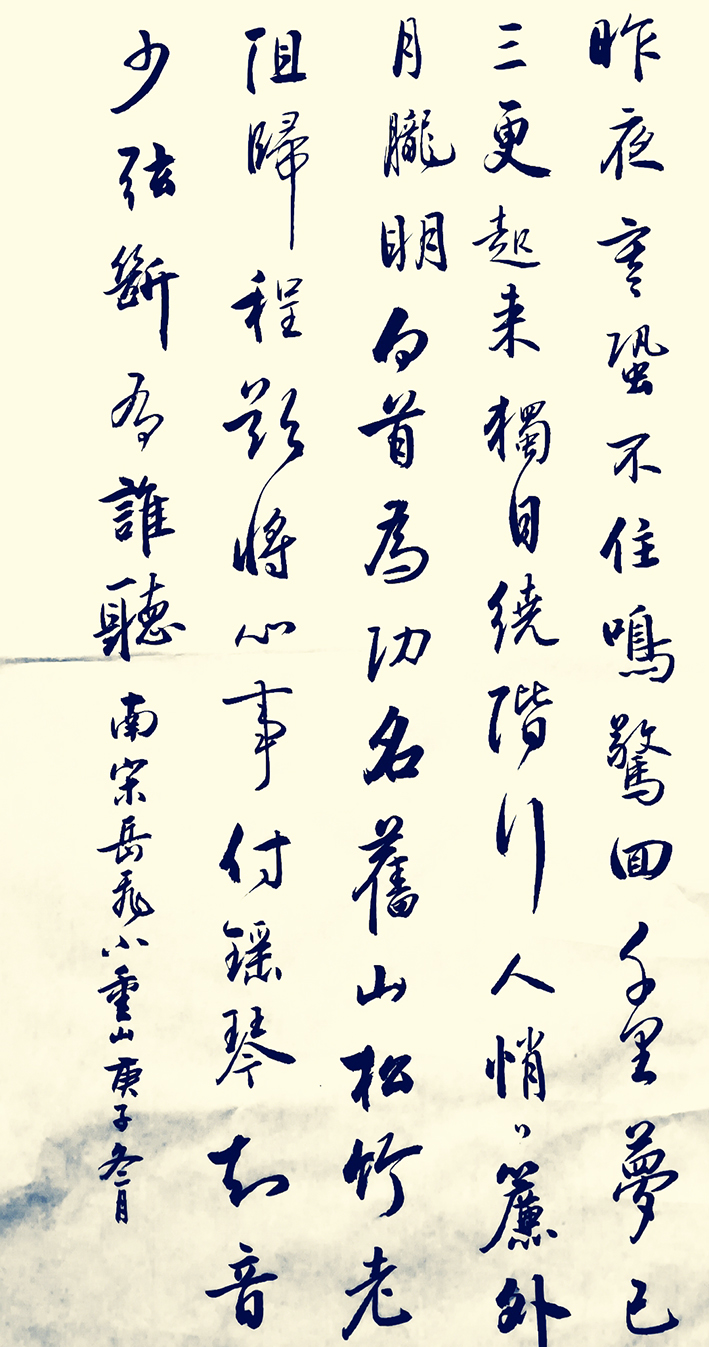 昨夜寒蛩不住鳴驚回千里夢已
三更起来獨自繞階行人悄〻簾外
月朧明白首為功名舊山松竹老
阻歸程欲將心事付瑶琴知音
少弦斷有誰聽 南宋岳飛小重山庚子冬月